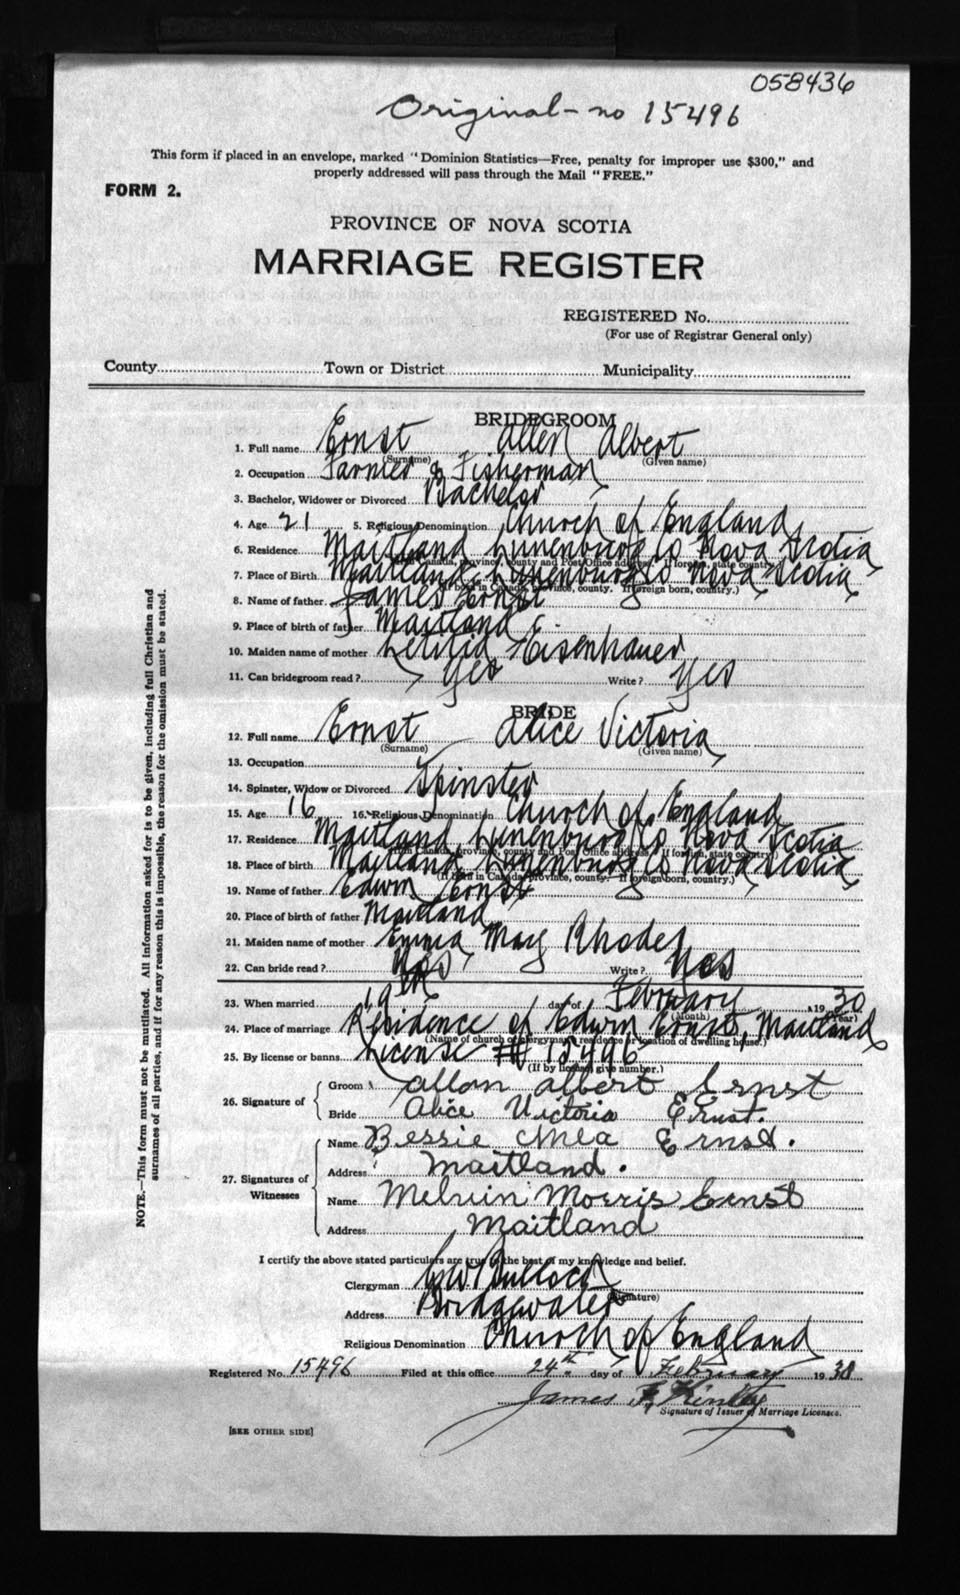 058436
Original - no 15496
This form if placed in an envelope, marked "Dominion Statistics—Free, penalty for improper use $300," and
properly addressed will pass through the Mail "FREE."
FORM 2.
PROVINCE OF NOVA SCOTIA
MARRIAGE REGISTER
REGISTERED No.
(For use of Registrar General only)
County Town or District Municipality
BRIDEGROOM
1. Full name Ernst Allen Albert
(Surname) (Given name)
2. Occupation Farmer & Fisherman
3. Bachelor, Widower or Divorced Bachelor
4. Age 21 5. Religious Denomination Church of England
6. Residence Maitland Lunenburg Co Nova Scotia
(If in Canada, province, county and Post Office address. If foreign, state country.)
7. Place of Birth Maitland, Lunenburg Co Nova Scotia
(If born in Canada, province, county. If foreign born, country.)
8. Name of father James Ernst
9. Place of birth of father Maitland
10. Maiden name of mother Letitia Eisenhauer
11. Can bridegroom read? Yes Write? Yes
BRIDE
12. Full name Ernst Alice Victoria
(Surname) (Given name)
13. Occupation
14. Spinster, Widow or Divorced Spinster
15. Age 16 16. Religious Denomination Church of England
17. Residence Maitland Lunenburg Co Nova Scotia
(If in Canada, province, county and Post Office address. If foreign, state country.)
18. Place of birth Maitland, Lunenburg Co Nova Scotia
(If born in Canada, province, county. If foreign born, country.)
19. Name of father Edwin Ernst
20. Place of birth of father Maitland
21. Maiden name of mother Emma May Rhodes
22. Can bride read? Yes Write? Yes
23. When married 19th day of February 1930
(Month) (Year)
24. Place of marriage Residence of Edwin Ernst, Maitland
(Name of church or clergyman's residence or location of dwelling house.)
25. By license or banns License # 15496
(If by license, give number.)
26. Signature of Groom Allan Albert Ernst
Bride Alice Victoria Ernst.
27. Signatures of Witnesses Name Bessie Mea Ernst.
Address Maitland.
Name Melvin Morris Ernst
Address Maitland
I certify the above stated particulars are true to the best of my knowledge and belief.
Clergyman Bullock
(Signature)
Address Bridgewater
Religious Denomination Church of England
Registered No. 15496 Filed at this office 24th day of February 1930
James F. Kinley
Signature of Issuer of Marriage Licenses.
[SEE OTHER SIDE]
NOTE.—This form must not be mutilated. All information asked for is to be given, including full Christian and
surnames of all parties, and if for any reason this is impossible, the reason for the omission must be stated.